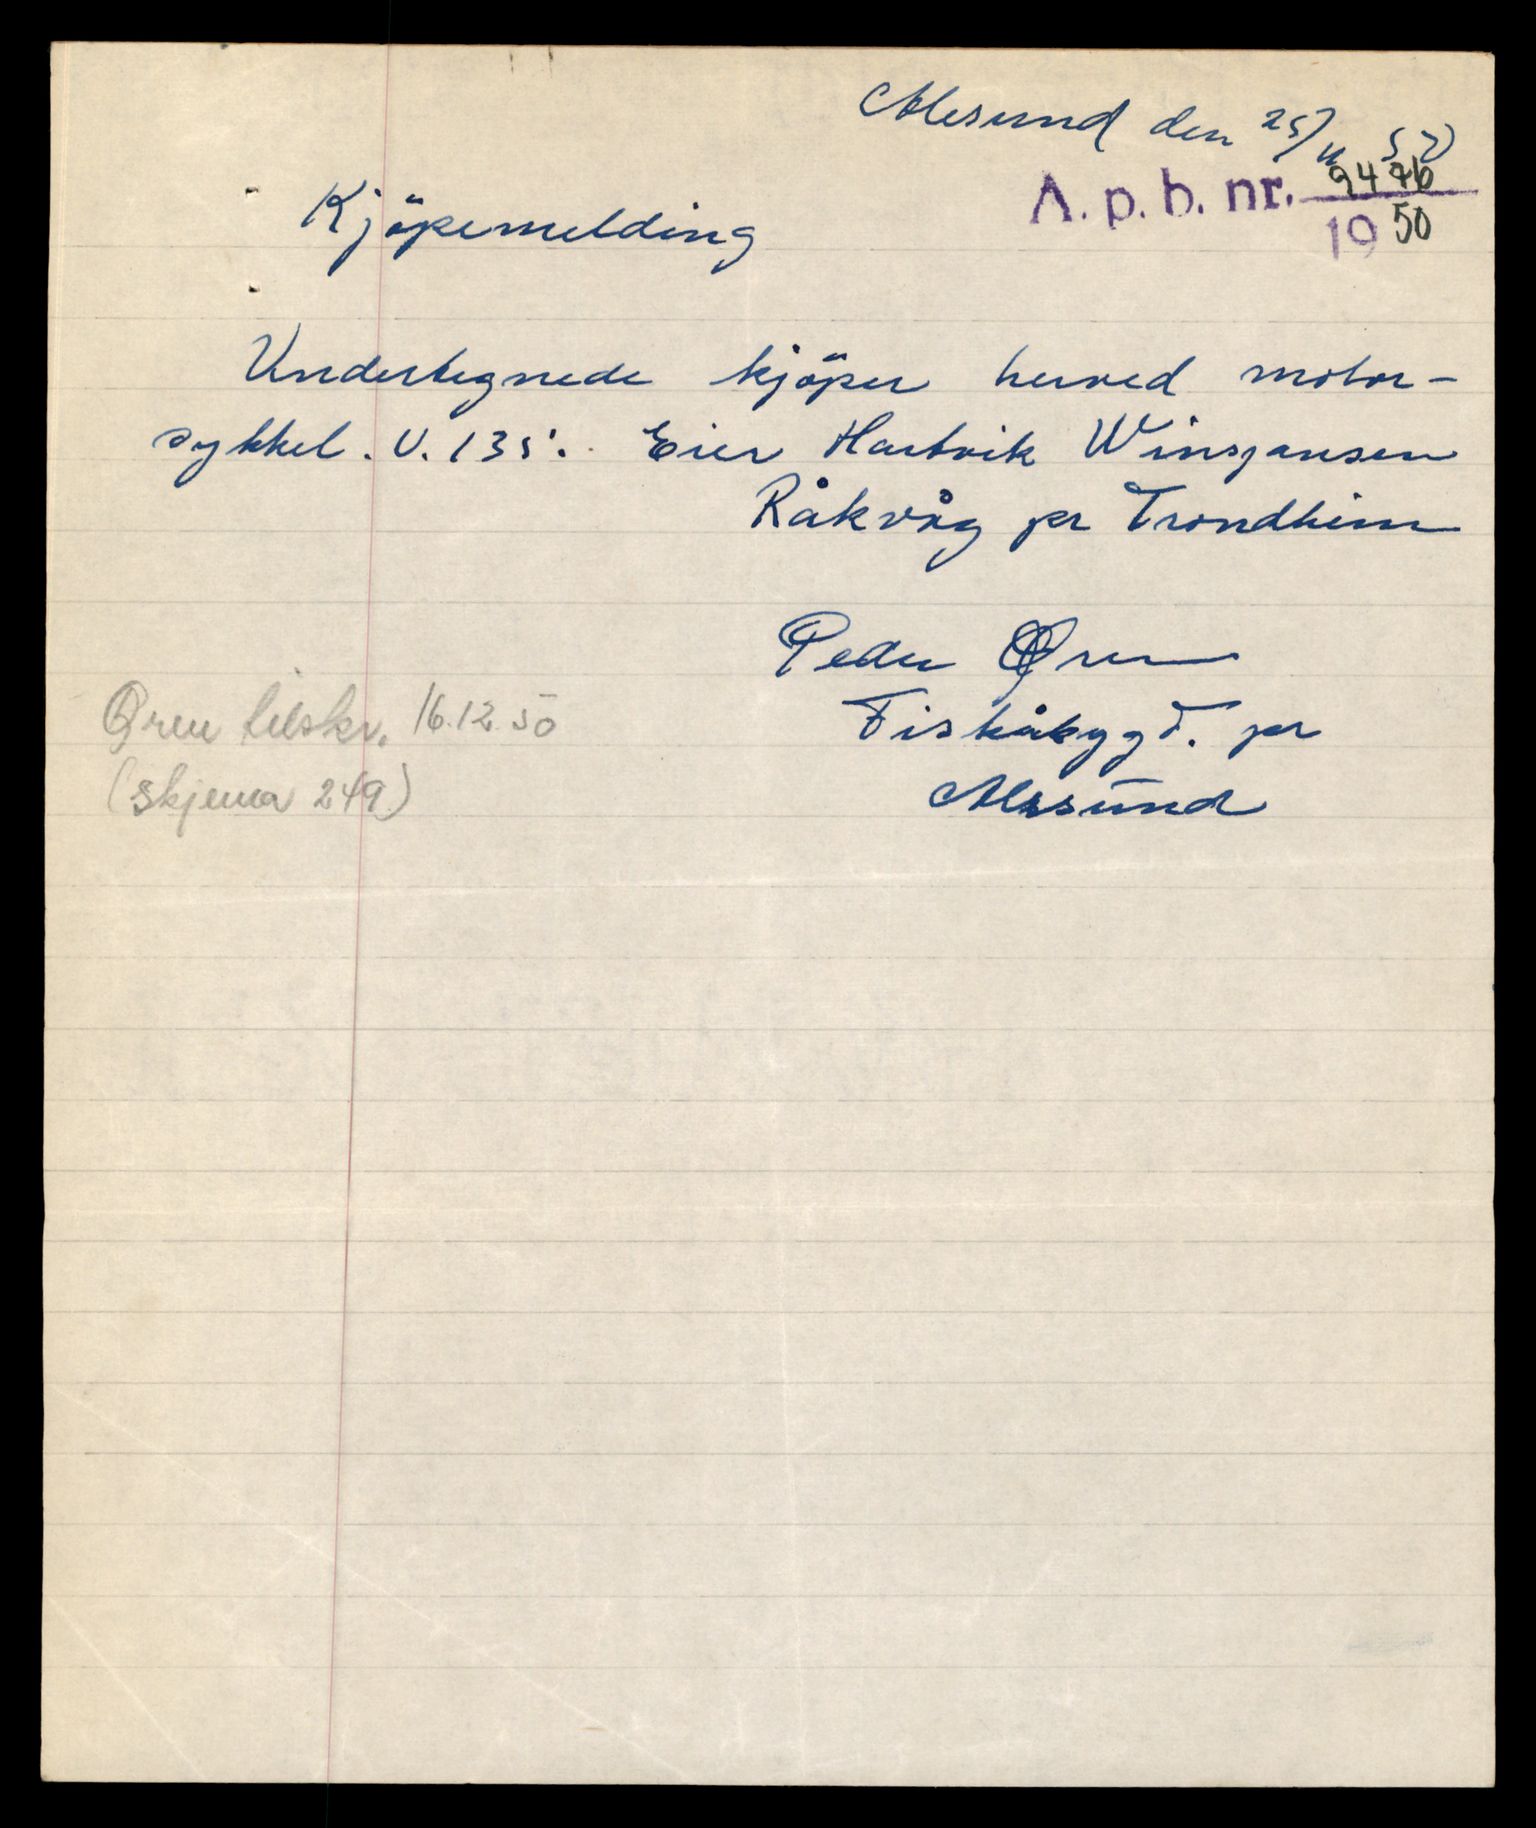 Alesund den 25/11 50
A. p. b. nr. 9476
1950
Kjöpemelding
Undertegnede kjöper herved motor-
sykkel. U. 135. Eier Hartvik Winsjansen
Råkvåg pr Trondheim
Peder Øren
Fiskåbygd. pr
Alesund
Øren tilskr. 16.12.50
(skjema 249)